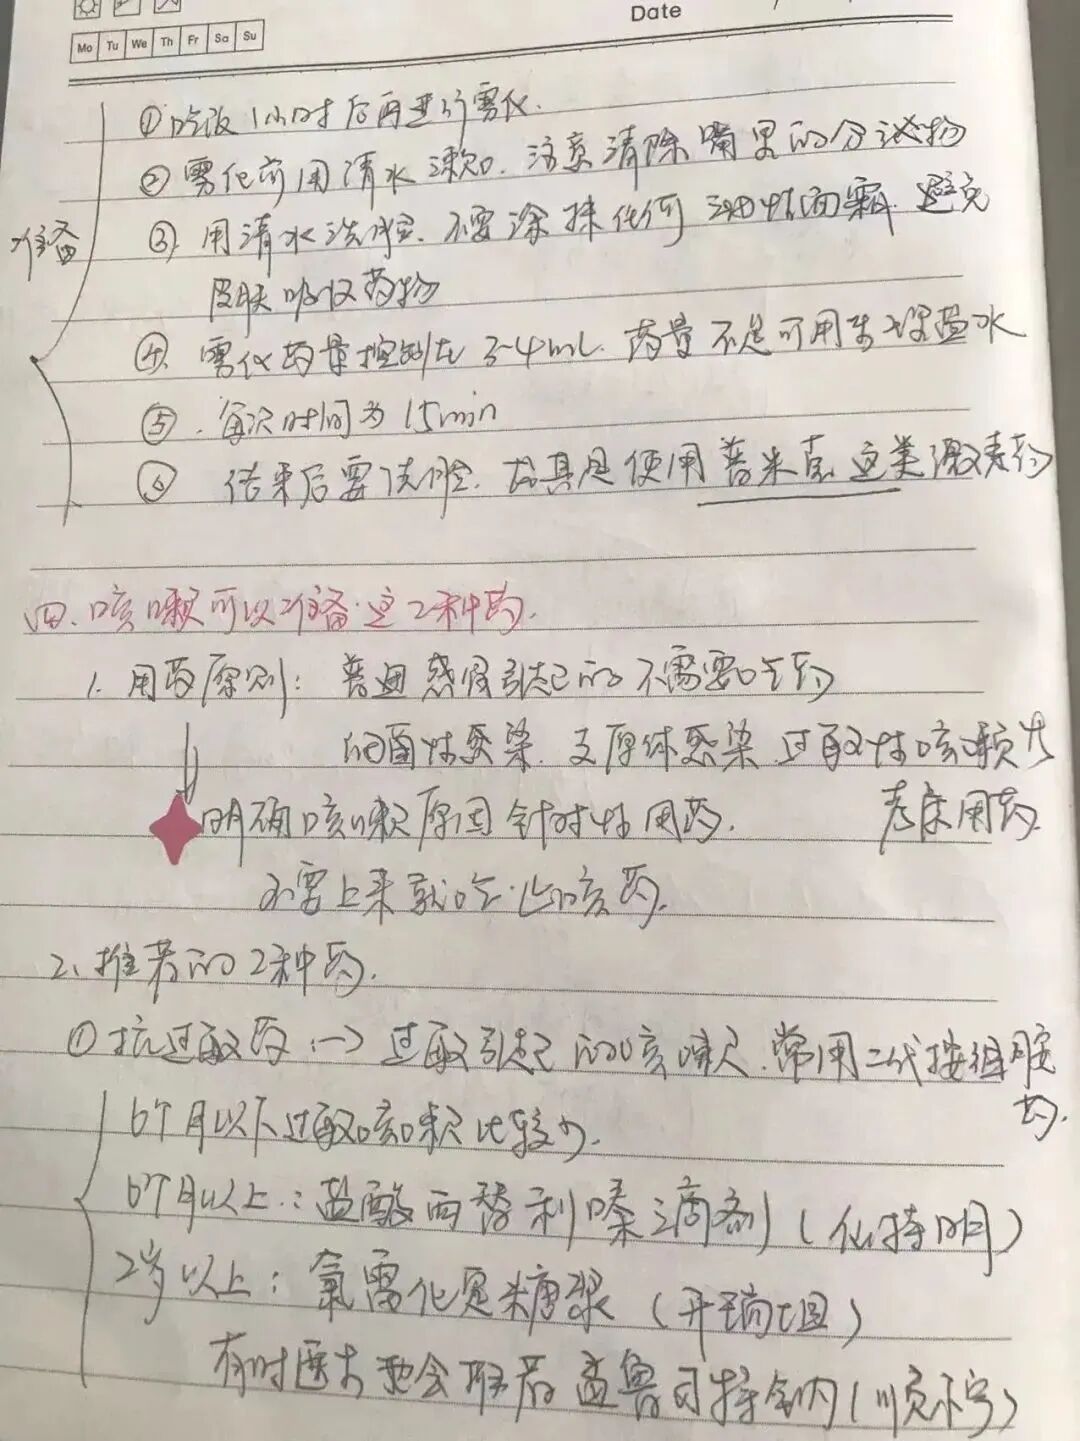 Date
Mo Tu We Th Fr Sa Su
准备
① 吃饭1小时后再进行雾化.
② 雾化前用清水漱口. 注意清除嘴里的分泌物
③ 用清水洗脸. 不要涂抹任何油性面霜. 避免
皮肤吸收药物
④ 雾化药量控制在3~4mL. 药量不足可用生理盐水
⑤. 每次时间为15min
⑥ 结束后要洗脸. 尤其是使用普米克这类激素药
四. 咳嗽可以准备这2种药.
1. 用药原则: 普通感冒引起的不需要吃药
细菌性感染. 支原体感染. 过敏性咳嗽才
考虑用药
明确咳嗽原因针对性用药.
不要上来就吃止咳药.
2. 推荐的2种药.
① 抗过敏药 → 过敏引起的咳嗽. 常用二代抗组胺
药.
6个月以下过敏咳嗽比较少.
6个月以上: 盐酸西替利嗪滴剂 (仙特明)
2岁以上: 氯雷他定糖浆 (开瑞坦)
有时医生也会联合孟鲁司特钠 (顺尔宁)